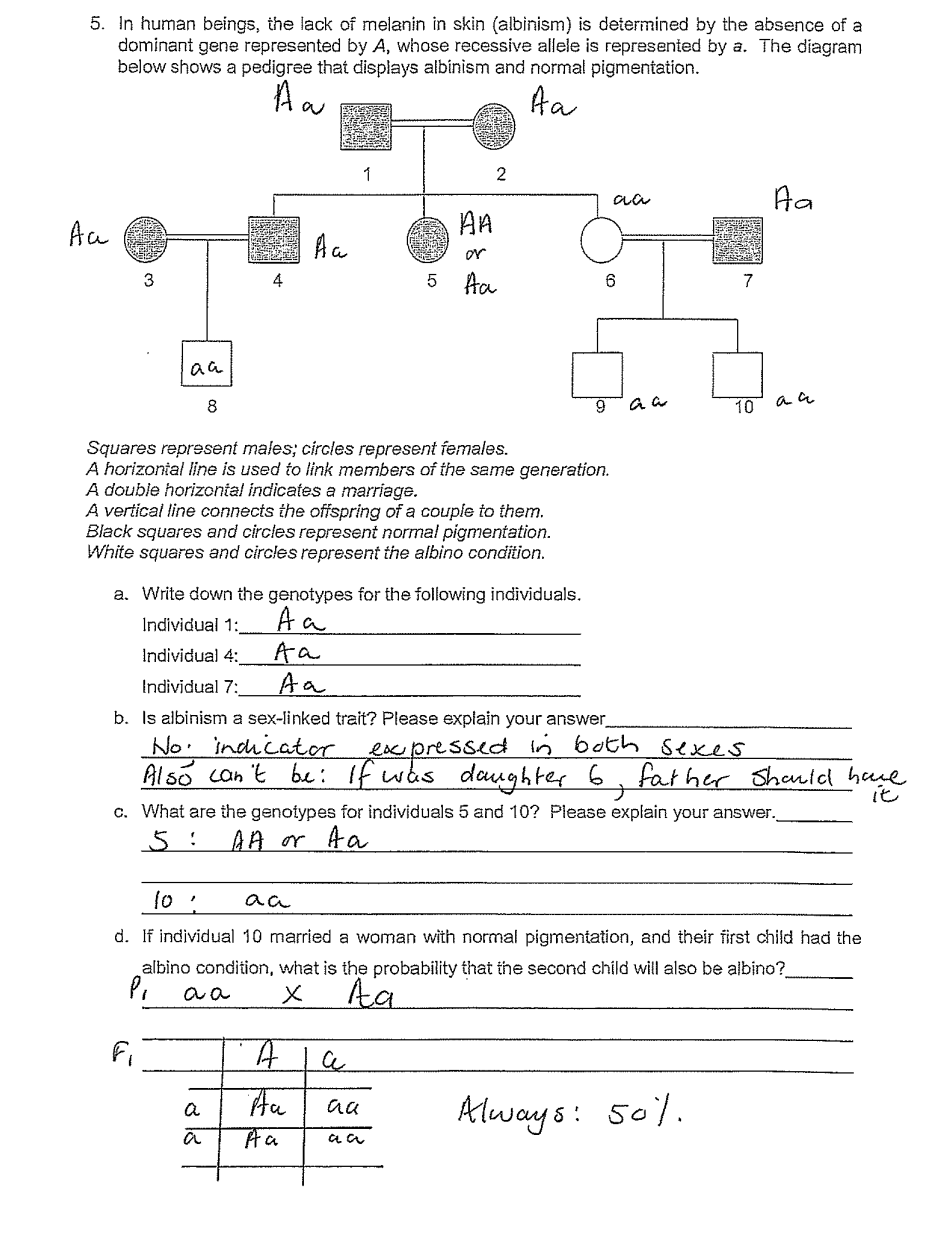 5. In human beings, the lack of melanin in skin (albinism) is determined by the absence of a
dominant gene represented by A, whose recessive allele is represented by a. The diagram
below shows a pedigree that displays albinism and normal pigmentation.
Aa Aa
1 2
aa Aa
Aa Aa AA
or
Aa
3 4 5 6 7
aa
8 9 aa 10 aa
Squares represent males; circles represent females.
A horizontal line is used to link members of the same generation.
A double horizontal indicates a marriage.
A vertical line connects the offspring of a couple to them.
Black squares and circles represent normal pigmentation.
White squares and circles represent the albino condition.
a. Write down the genotypes for the following individuals.
Individual 1: Aa
Individual 4: Aa
Individual 7: Aa
b. Is albinism a sex-linked trait? Please explain your answer
No. indicator expressed in both sexes
Also can't be: If was daughter 6, father should have
it
c. What are the genotypes for individuals 5 and 10? Please explain your answer.
5: AA or Aa
10: aa
d. If individual 10 married a woman with normal pigmentation, and their first child had the
albino condition, what is the probability that the second child will also be albino?
P1 aa X Aa
F1 A a
a Aa aa
a Aa aa
Always: 50%.